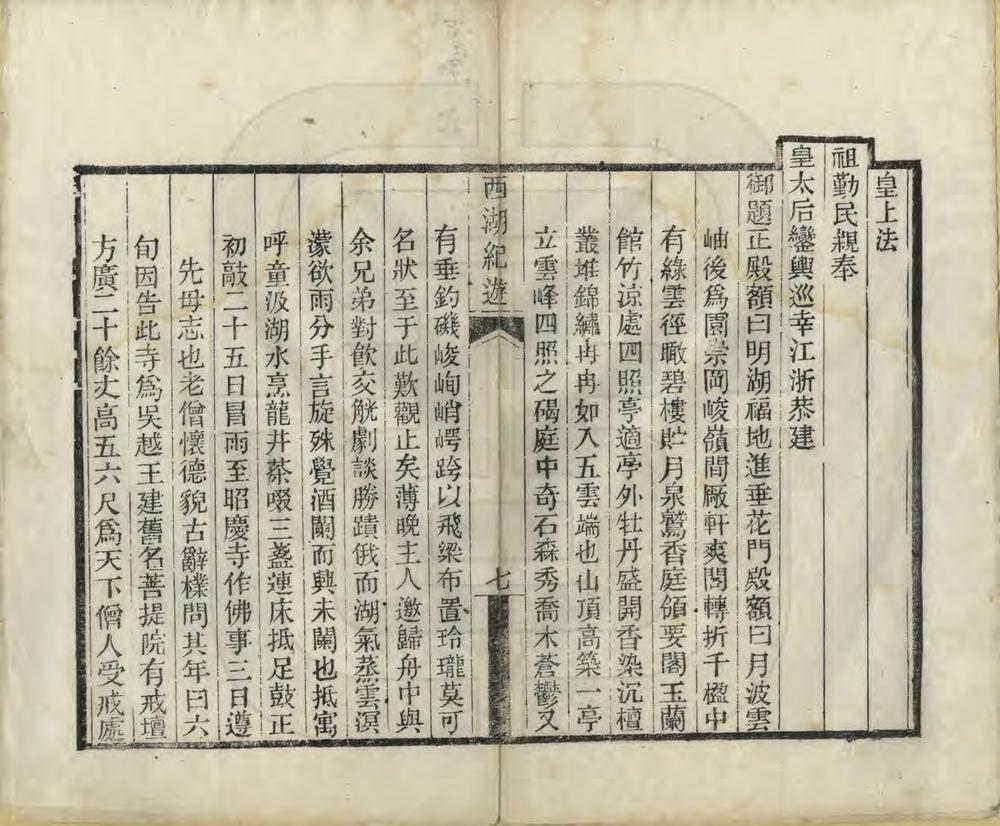 皇上法
祖勤民親奉
皇太后鑾輿巡幸江浙恭建
御題正殿額曰明湖福地進垂花門殿額曰月波雲
岫後爲園崇岡峻嶺間厰軒爽閣轉折千楹中
有綠雲徑瞰碧樓貯月泉鷲香庭領要閣玉蘭
館竹涼處四照亭適亭外牡丹盛開香染沉檀
叢堆錦繡冉冉如入五雲端也山頂高築一亭
立雲峰四照之碣庭中奇石森秀喬木蒼鬱又
西湖紀遊
七
有垂釣磯峻峋峭崿跨以飛梁布置玲瓏莫可
名狀至于此歎觀止矣薄晚主人邀歸舟中與
余兄弟對飲交觥劇談勝蹟俄而湖氣蒸雲溟
濛欲雨分手言旋殊覺酒闌而興未闌也抵寓
呼童汲湖水烹龍井茶啜三盞連床抵足鼓正
初敲二十五日冒雨至昭慶寺作佛事三日遵
先母志也老僧懷德貌古辭樸問其年曰六
旬因告此寺爲吳越王建舊名菩提院有戒壇
方廣二十餘丈高五六尺爲天下僧人受戒處